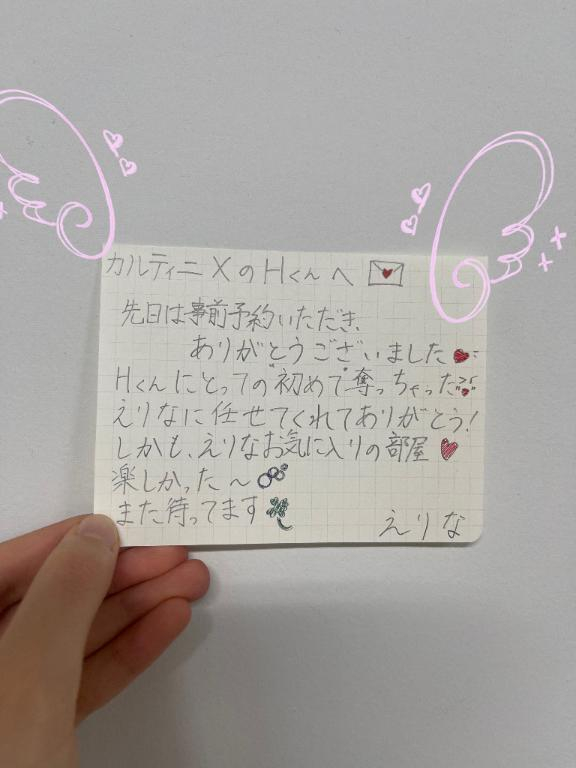 カルティニXのHくんへ
先日は事前予約いただき、
ありがとうございました
Hくんにとっての"初めて"奪っちゃった
えりなに任せてくれてありがとう!
しかも、えりなお気に入りの部屋
楽しかった〜
また待ってます
えりな